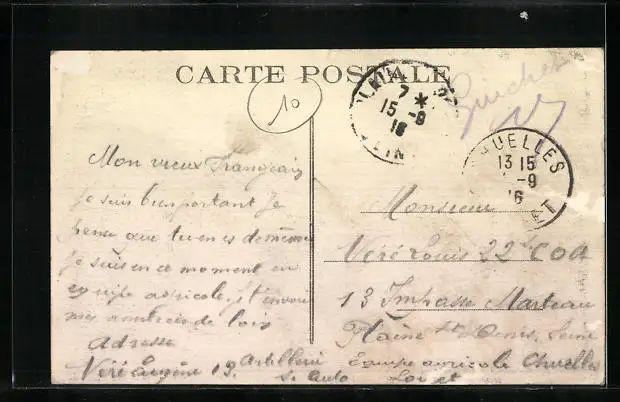 CARTE POSTALE
10
Guichet
7 *
15 - 9
16
UELLES
13 15
- 9
16
ET
Mon vieux Français
Je suis bien portant Je
pense que tu en es de même
Je suis en ce moment en
equipe agricole. Je t'envoi
mes amitiés de loin
Adresse
Véré Eugène 13. Artillerie
S. Auto
Monsieur
Véré Louis 22e COA
13 Impasse Marteau
Plaine St Denis. Seine
Equipe agricole Chuelles
Loiret